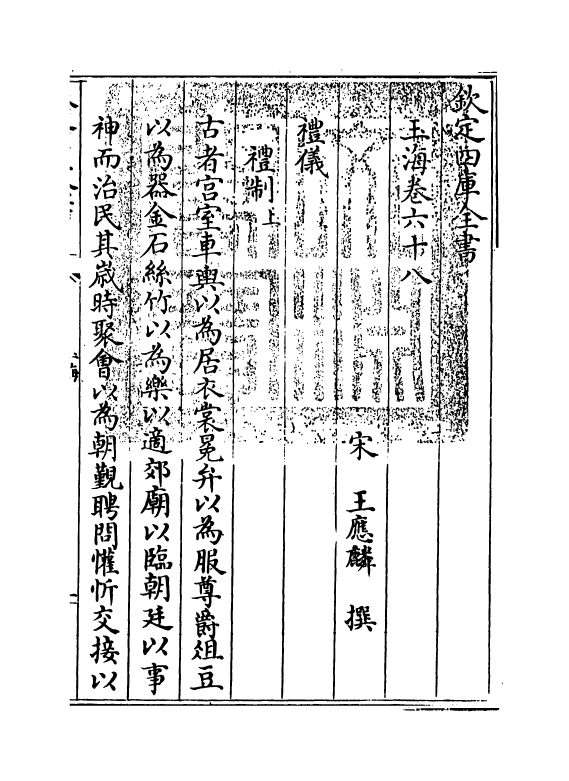 欽定四庫全書
玉海卷六十八
宋　王應麟　撰
禮儀
禮制上
古者宮室車輿以為居衣裳冕弁以為服尊爵俎豆
以為器金石絲竹以為樂以適郊廟以臨朝廷以事
神而治民其歲時聚會以為朝覲聘問懽忻交接以